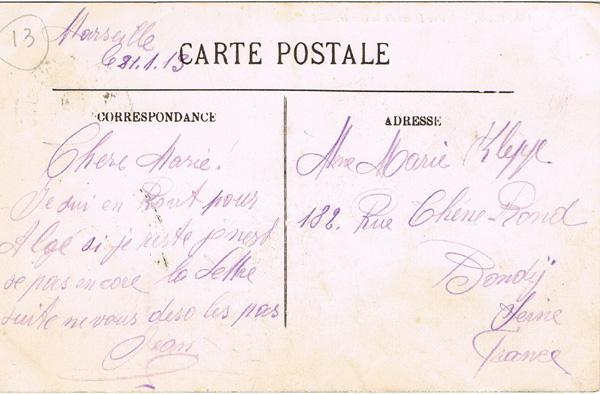 13
Marseille
le 21.1.13
CARTE POSTALE
CORRESPONDANCE
Chere Marie!
Je sui en Rout pour
Algé si je riste
se pas encore la Lettre
suite ne vous deso les pas
Jean
ADRESSE
Mme Marie Kleppe
182. Rue Chéne-Rond
Bondÿ
Seine
France